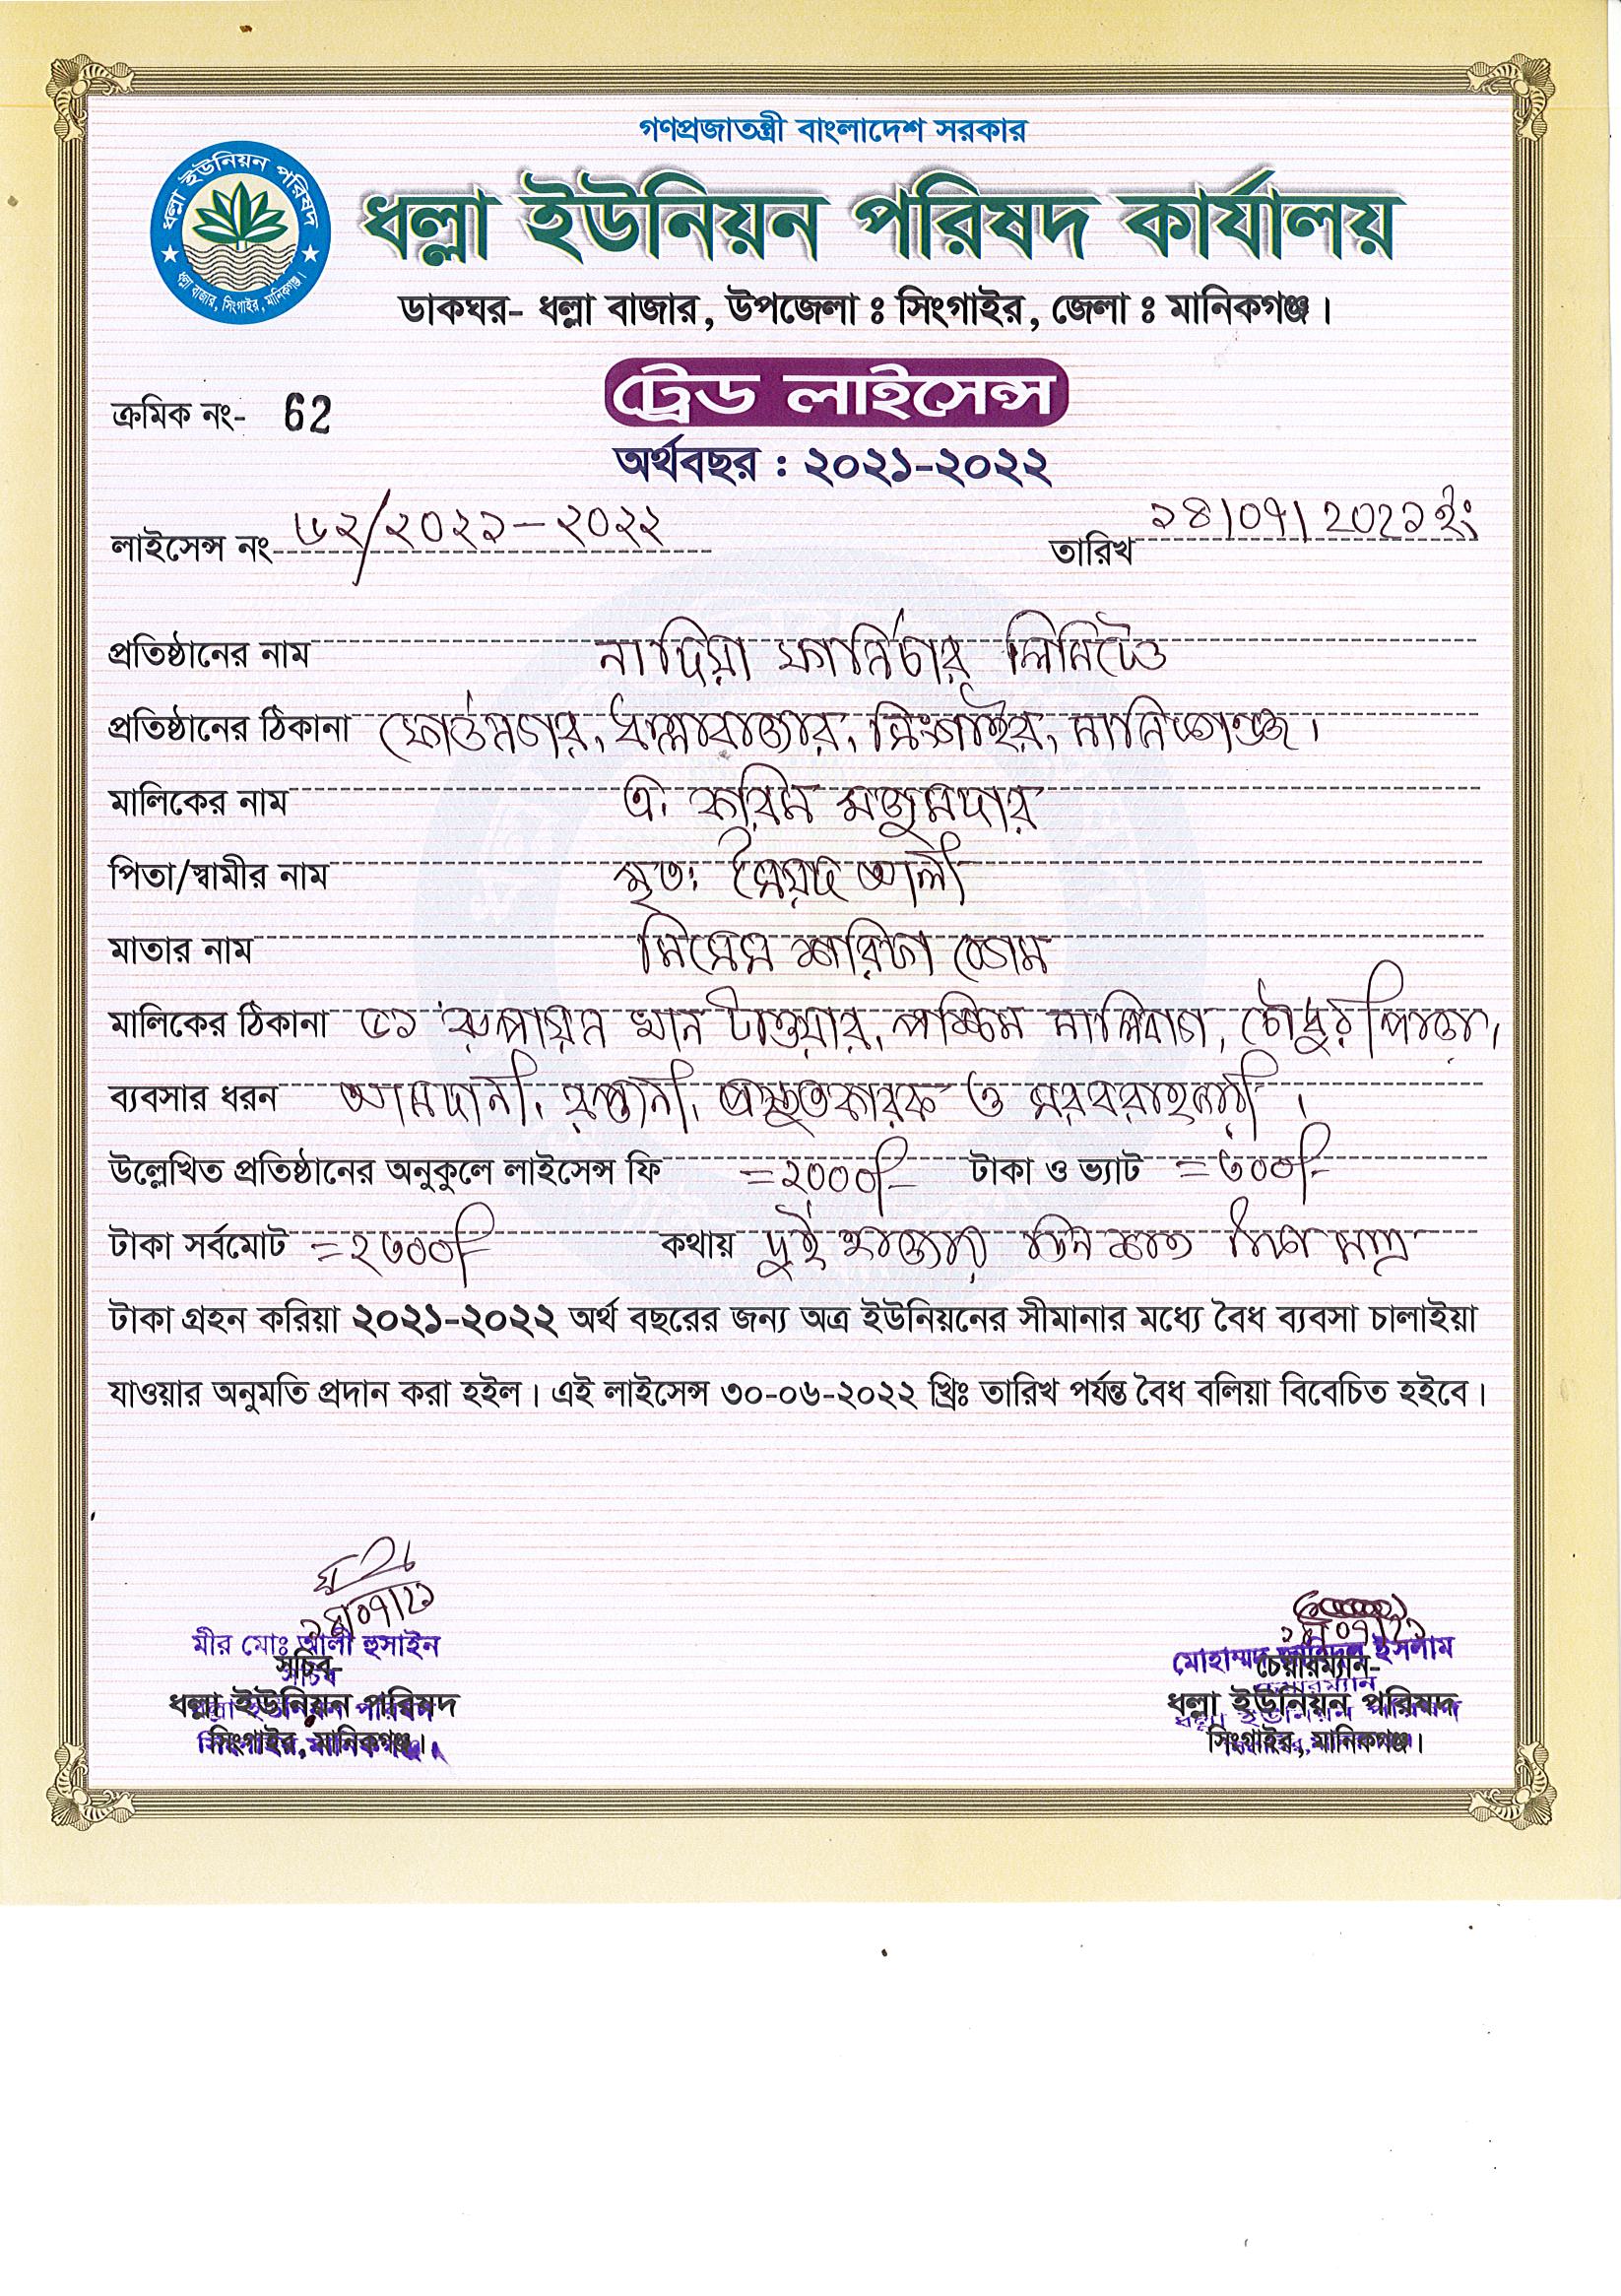 গণপ্রজাতন্ত্রী বাংলাদেশ সরকার
ধল্লা ইউনিয়ন পরিষদ
ধল্লা বাজার, সিংগাইর, মানিকগঞ্জ।
ধল্লা ইউনিয়ন পরিষদ কার্যালয়
ডাকঘর- ধল্লা বাজার, উপজেলা ঃ সিংগাইর, জেলা ঃ মানিকগঞ্জ।
ট্রেড লাইসেন্স
ক্রমিক নং- 62
অর্থবছর : ২০২১-২০২২
লাইসেন্স নং ৬২/২০২১-২০২২ তারিখ ১৪/০৭/২০২১ ইং
প্রতিষ্ঠানের নাম নাদিয়া ফার্নিচার লিমিটেড
প্রতিষ্ঠানের ঠিকানা ফোর্ডনগর, ধল্লাবাজার, সিংগাইর, মানিকগঞ্জ।
মালিকের নাম এ. করিম মজুমদার
পিতা/স্বামীর নাম মৃত: সৈয়দ আলী
মাতার নাম মিসেস বেগম
মালিকের ঠিকানা ৫১ রুপায়ন খান টাওয়ার, পশ্চিম মালিবাগ, চৌধুরীপাড়া,
ব্যবসার ধরন আমদানী, রপ্তানী, প্রস্তুতকারক ও সরবরাহকারী।
উল্লেখিত প্রতিষ্ঠানের অনুকুলে লাইসেন্স ফি =২০০০/- টাকা ও ভ্যাট =৩০০/-
টাকা সর্বমোট =২৩০০/- কথায় দুই হাজার তিন শত টাকা মাত্র
টাকা গ্রহন করিয়া ২০২১-২০২২ অর্থ বছরের জন্য অত্র ইউনিয়নের সীমানার মধ্যে বৈধ ব্যবসা চালাইয়া
যাওয়ার অনুমতি প্রদান করা হইল। এই লাইসেন্স ৩০-০৬-২০২২ খ্রিঃ তারিখ পর্যন্ত বৈধ বলিয়া বিবেচিত হইবে।
১৪/০৭/২১
মীর মোঃ আলী হুসাইন
সচিব-
সচিব
ধল্লা ইউনিয়ন পরিষদ
সিংগাইর, মানিকগঞ্জ।
১৪/০৭/২১
মোহাম্মদ ইসলাম
চেয়ারম্যান-
চেয়ারম্যান
ধল্লা ইউনিয়ন পরিষদ
সিংগাইর, মানিকগঞ্জ।